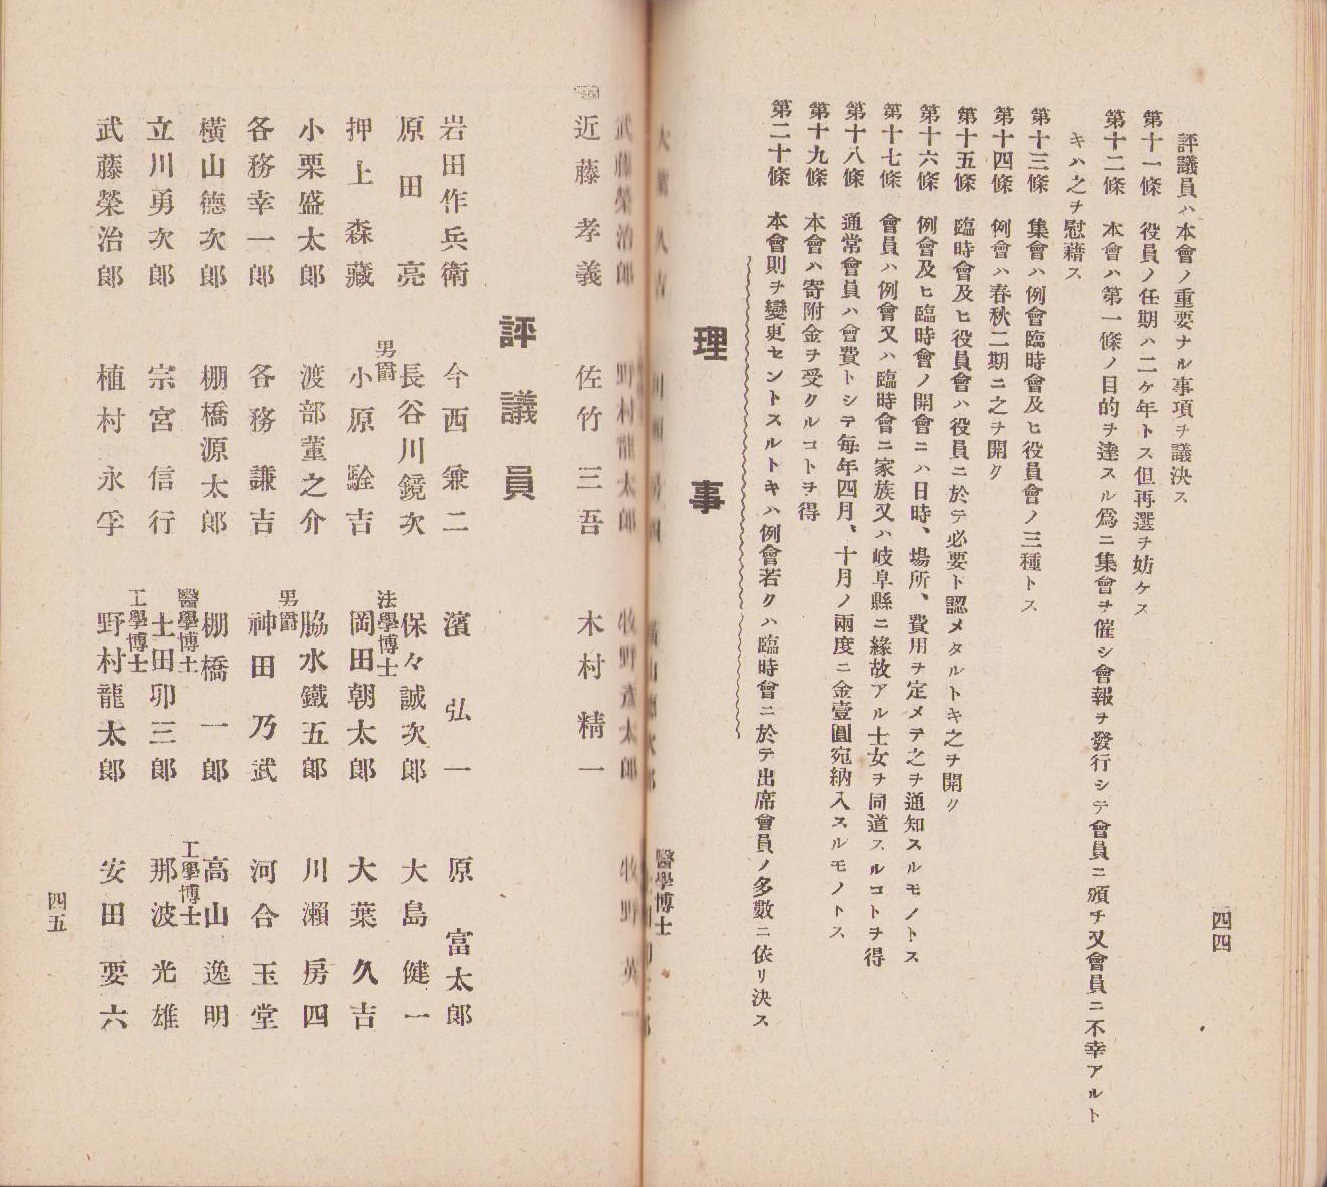 評議員ハ本會ノ重要ナル事項ヲ議決ス
第十一條 役員ノ任期ハ二ケ年トス但再選ヲ妨ケス
第十二條 本會ハ第一條ノ目的ヲ達スル爲ニ集會ヲ催シ會報ヲ發行シテ會員ニ頒チ又會員ニ不幸アルト
キハ之ヲ慰藉ス
第十三條 集會ハ例會臨時會及ヒ役員會ノ三種トス
第十四條 例會ハ春秋二期ニ之ヲ開ク
第十五條 臨時會及ヒ役員會ハ役員ニ於テ必要ト認メタルトキ之ヲ開ク
第十六條 例會及ヒ臨時會ノ開會ニハ日時、場所、費用ヲ定メテ之ヲ通知スルモノトス
第十七條 會員ハ例會又ハ臨時會ニ家族又ハ岐阜縣ニ緣故アル士女ヲ同道スルコトヲ得
第十八條 通常會員ハ會費トシテ每年四月、十月ノ兩度ニ金壹圓宛納入スルモノトス
第十九條 本會ハ寄附金ヲ受クルコトヲ得
第二十條 本會則ヲ變更セントスルトキハ例會若クハ臨時會ニ於テ出席會員ノ多數ニ依リ決ス
理事
醫學博士
四四
武藤榮治郎 野村龍太郎 牧野 太郎 牧野英一
近藤孝義 佐竹三吾 木村精一
評議員
岩田作兵衛 今西兼二 濱弘一 原富太郎
原田亮 長谷川鏡次 保々誠次郎 大島健一
押上森藏 男爵 小原駩吉 法學博士 岡田朝太郎 大葉久吉
小栗盛太郎 渡部董之介 脇水鐵五郎 川瀨房四
各務幸一郎 各務謙吉 男爵 神田乃武 河合玉堂
横山德次郎 棚橋源太郎 棚橋一郎 高山逸明
立川勇次郎 宗宮信行 醫學博士 土田卯三郎 工學博士 那波光雄
武藤榮治郎 植村永孚 工學博士 野村龍太郎 安田要六
四五